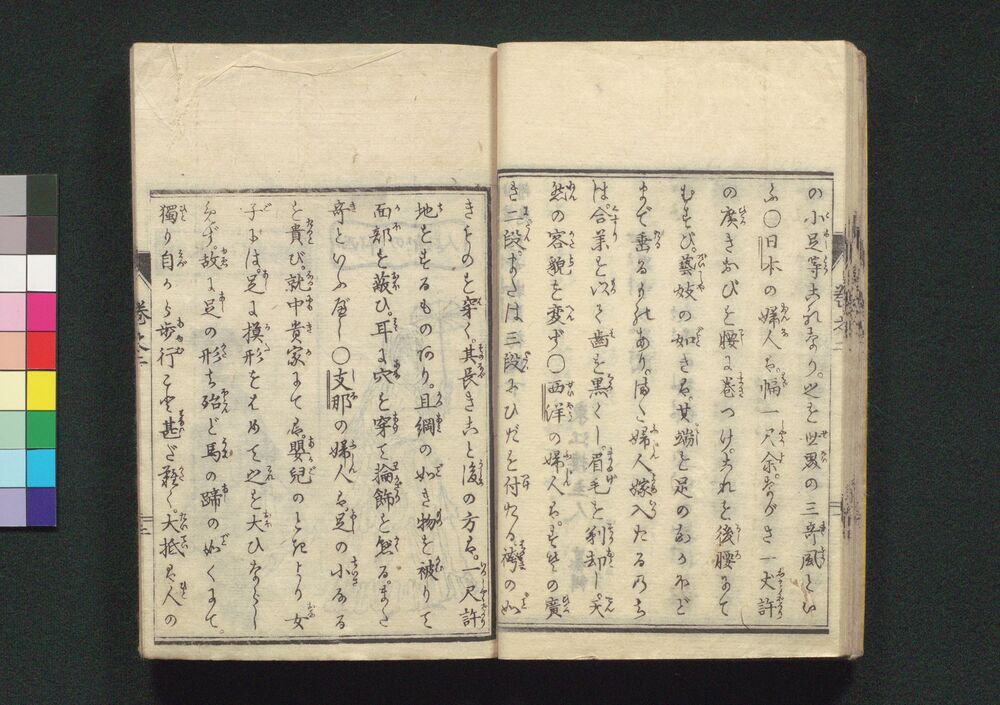 の小足等これなり。之を世界の三奇風とい
ふ〇日本の婦人ハ。幅一尺余。ながさ一丈許
の広きおびを腰に巻つけ。これを後腰にて
むすび。藝妓の如きハ。其端を足のあかほど
まで垂るものあり。偖婦人嫁入たるのちハ
は。含葉を以て歯を黒くし。眉毛を剃却し。天
然の容貌を変ず〇西洋の婦人ハ。すその廣
き二段。または三段にひだを付たる。袴の如
きものを穿く。其長きこと後の方ハ。一尺許
地をするものあり。且網の如き物を被りて
面部を蔽ひ。耳に穴を穿て掄飾を懸る。また
奇といふべし〇支那の婦人ハ。足の小なる
を貴び。就中貴家にてハ。嬰児のときより女
子には。足に模形をはめて之を大ひならし
めず。故に足の形ち殆ど馬の蹄の如くにて。
獨り自から歩行こと甚だ難し。大抵ハ人の
巻之二
二